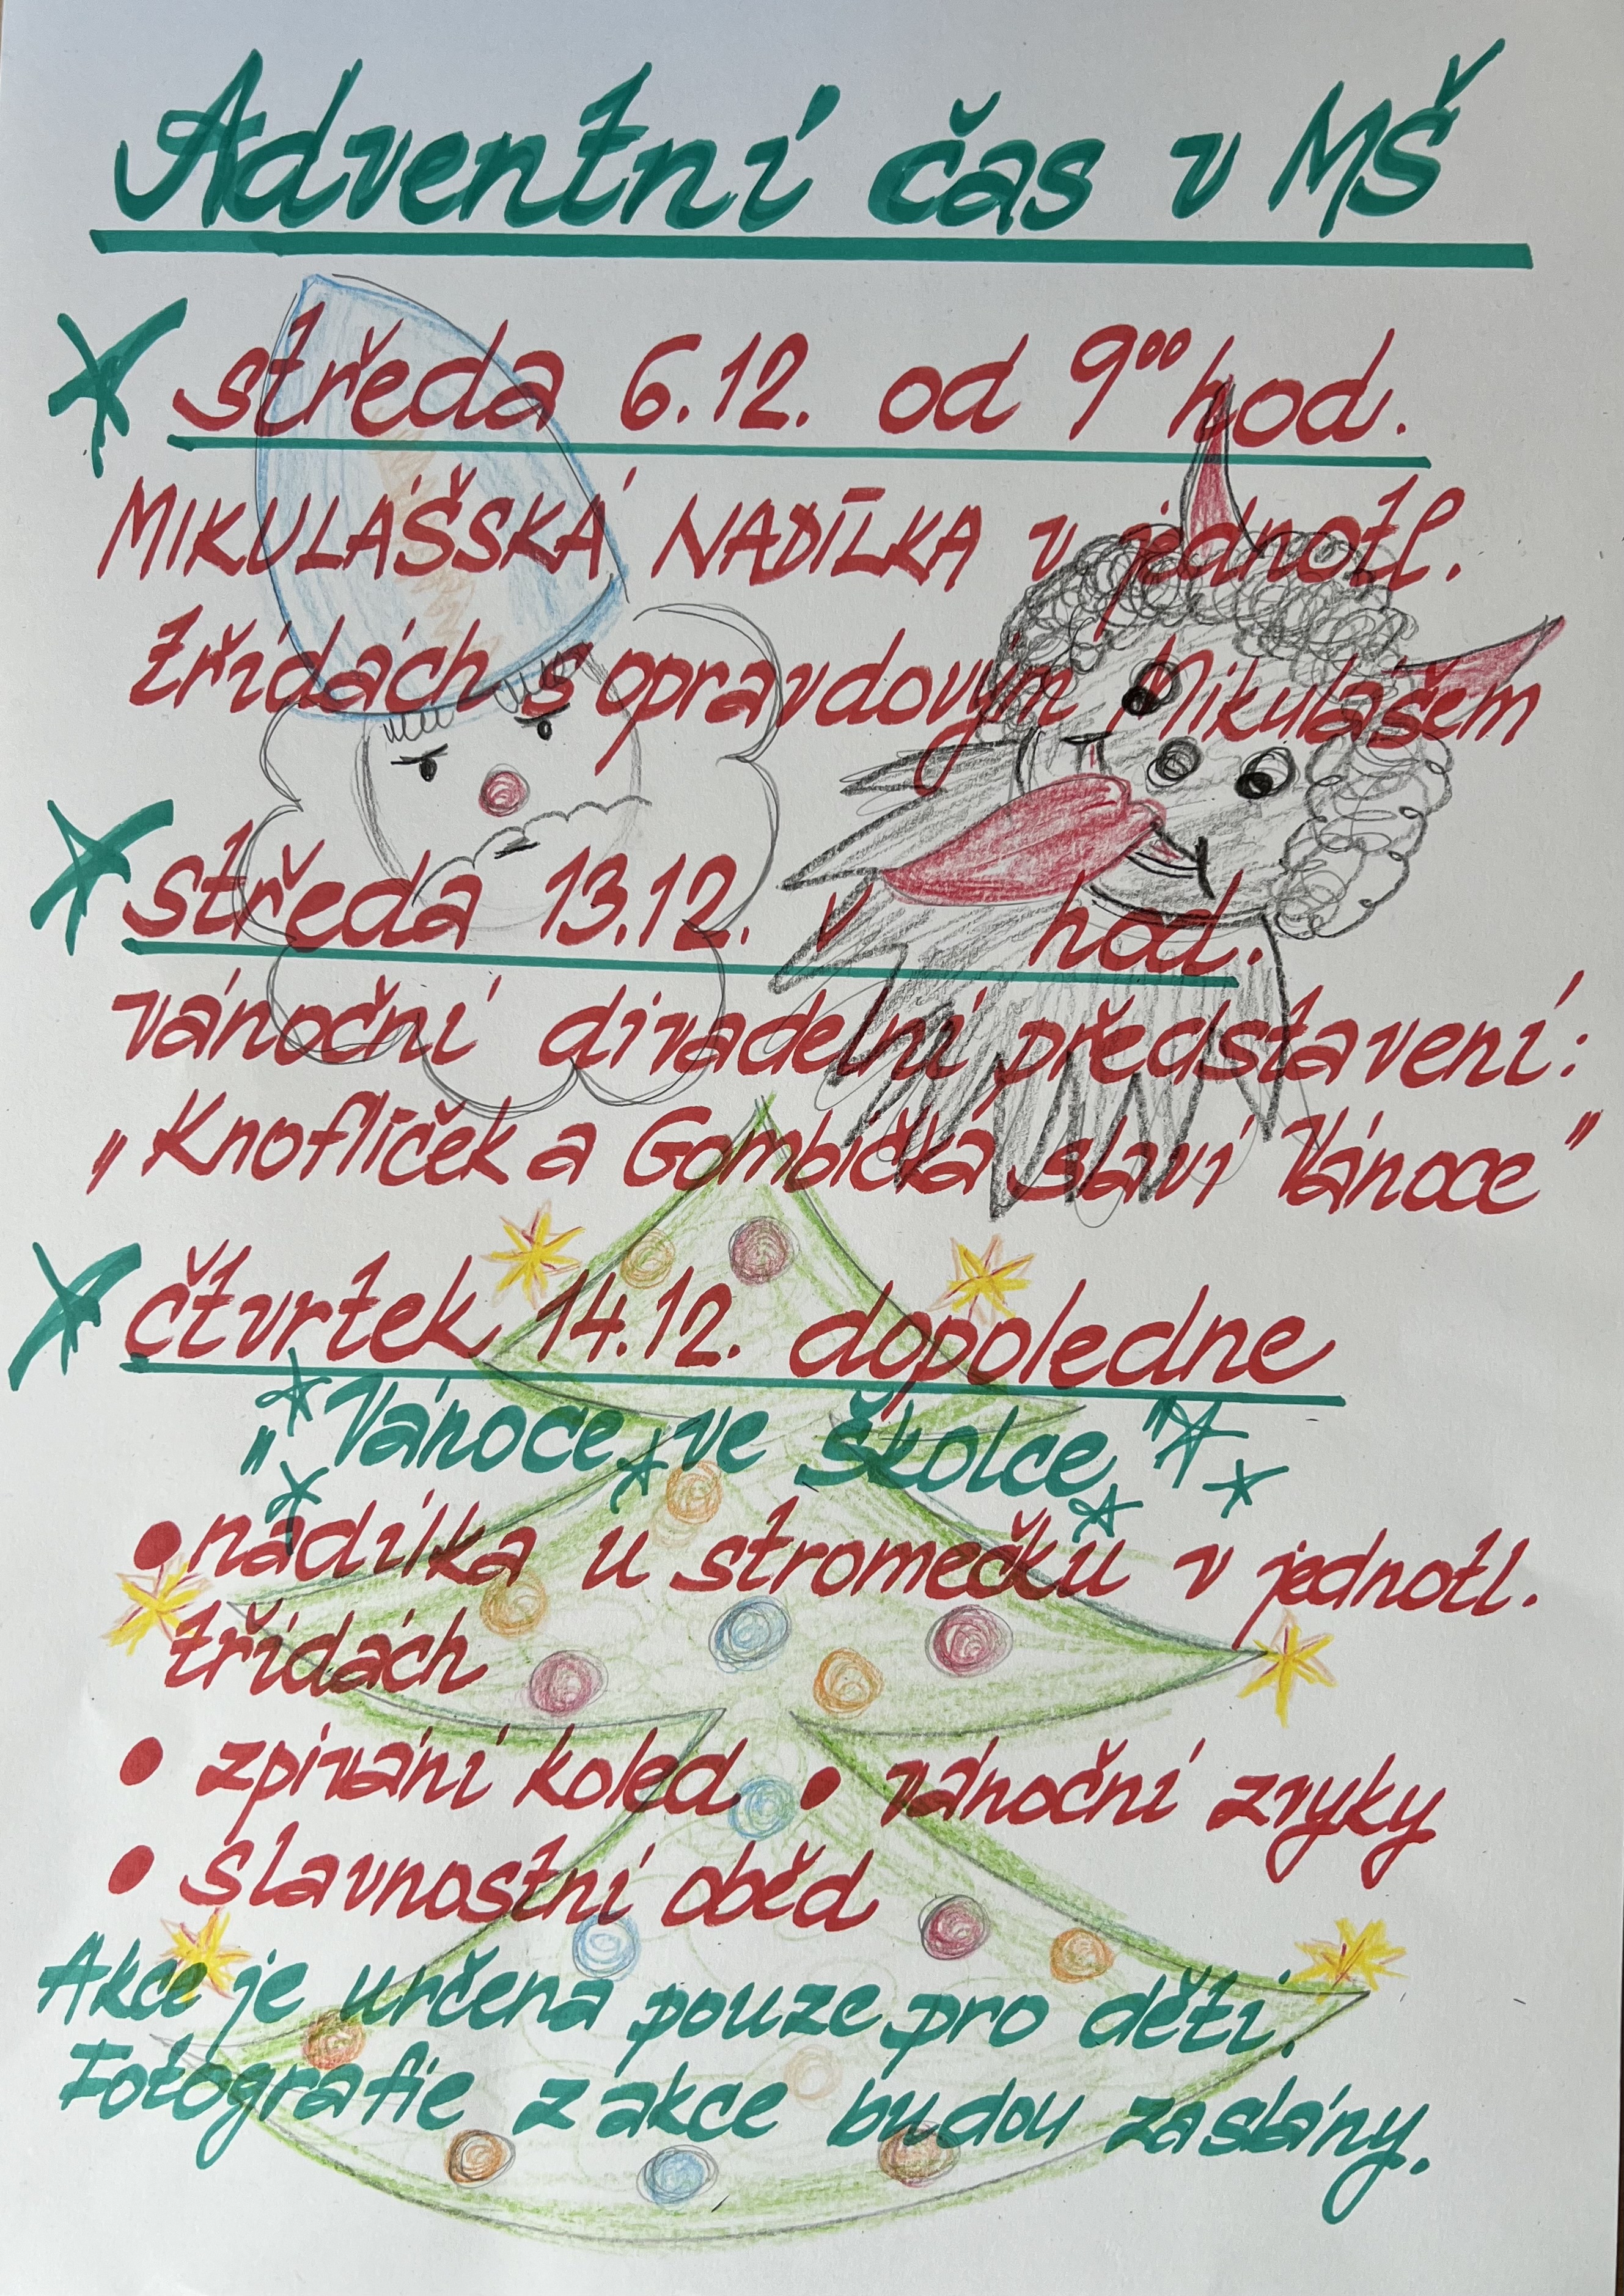 Adventní čas v MŠ
středa 6.12. od 9⁰⁰ hod.
MIKULÁŠSKÁ NADÍLKA v jednotl.
třídách s opravdovým Mikulášem
středa 13.12. v hod.
vánoční divadelní představení:
„Knoflíček a Gombička slaví Vánoce"
čtvrtek 14.12. dopoledne
„Vánoce ve školce"
• nadílka u stromečku v jednotl.
třídách
• zpívání koled • vánoční zvyky
• slavnostní oběd
Akce je určena pouze pro děti.
Fotografie z akce budou zaslány.